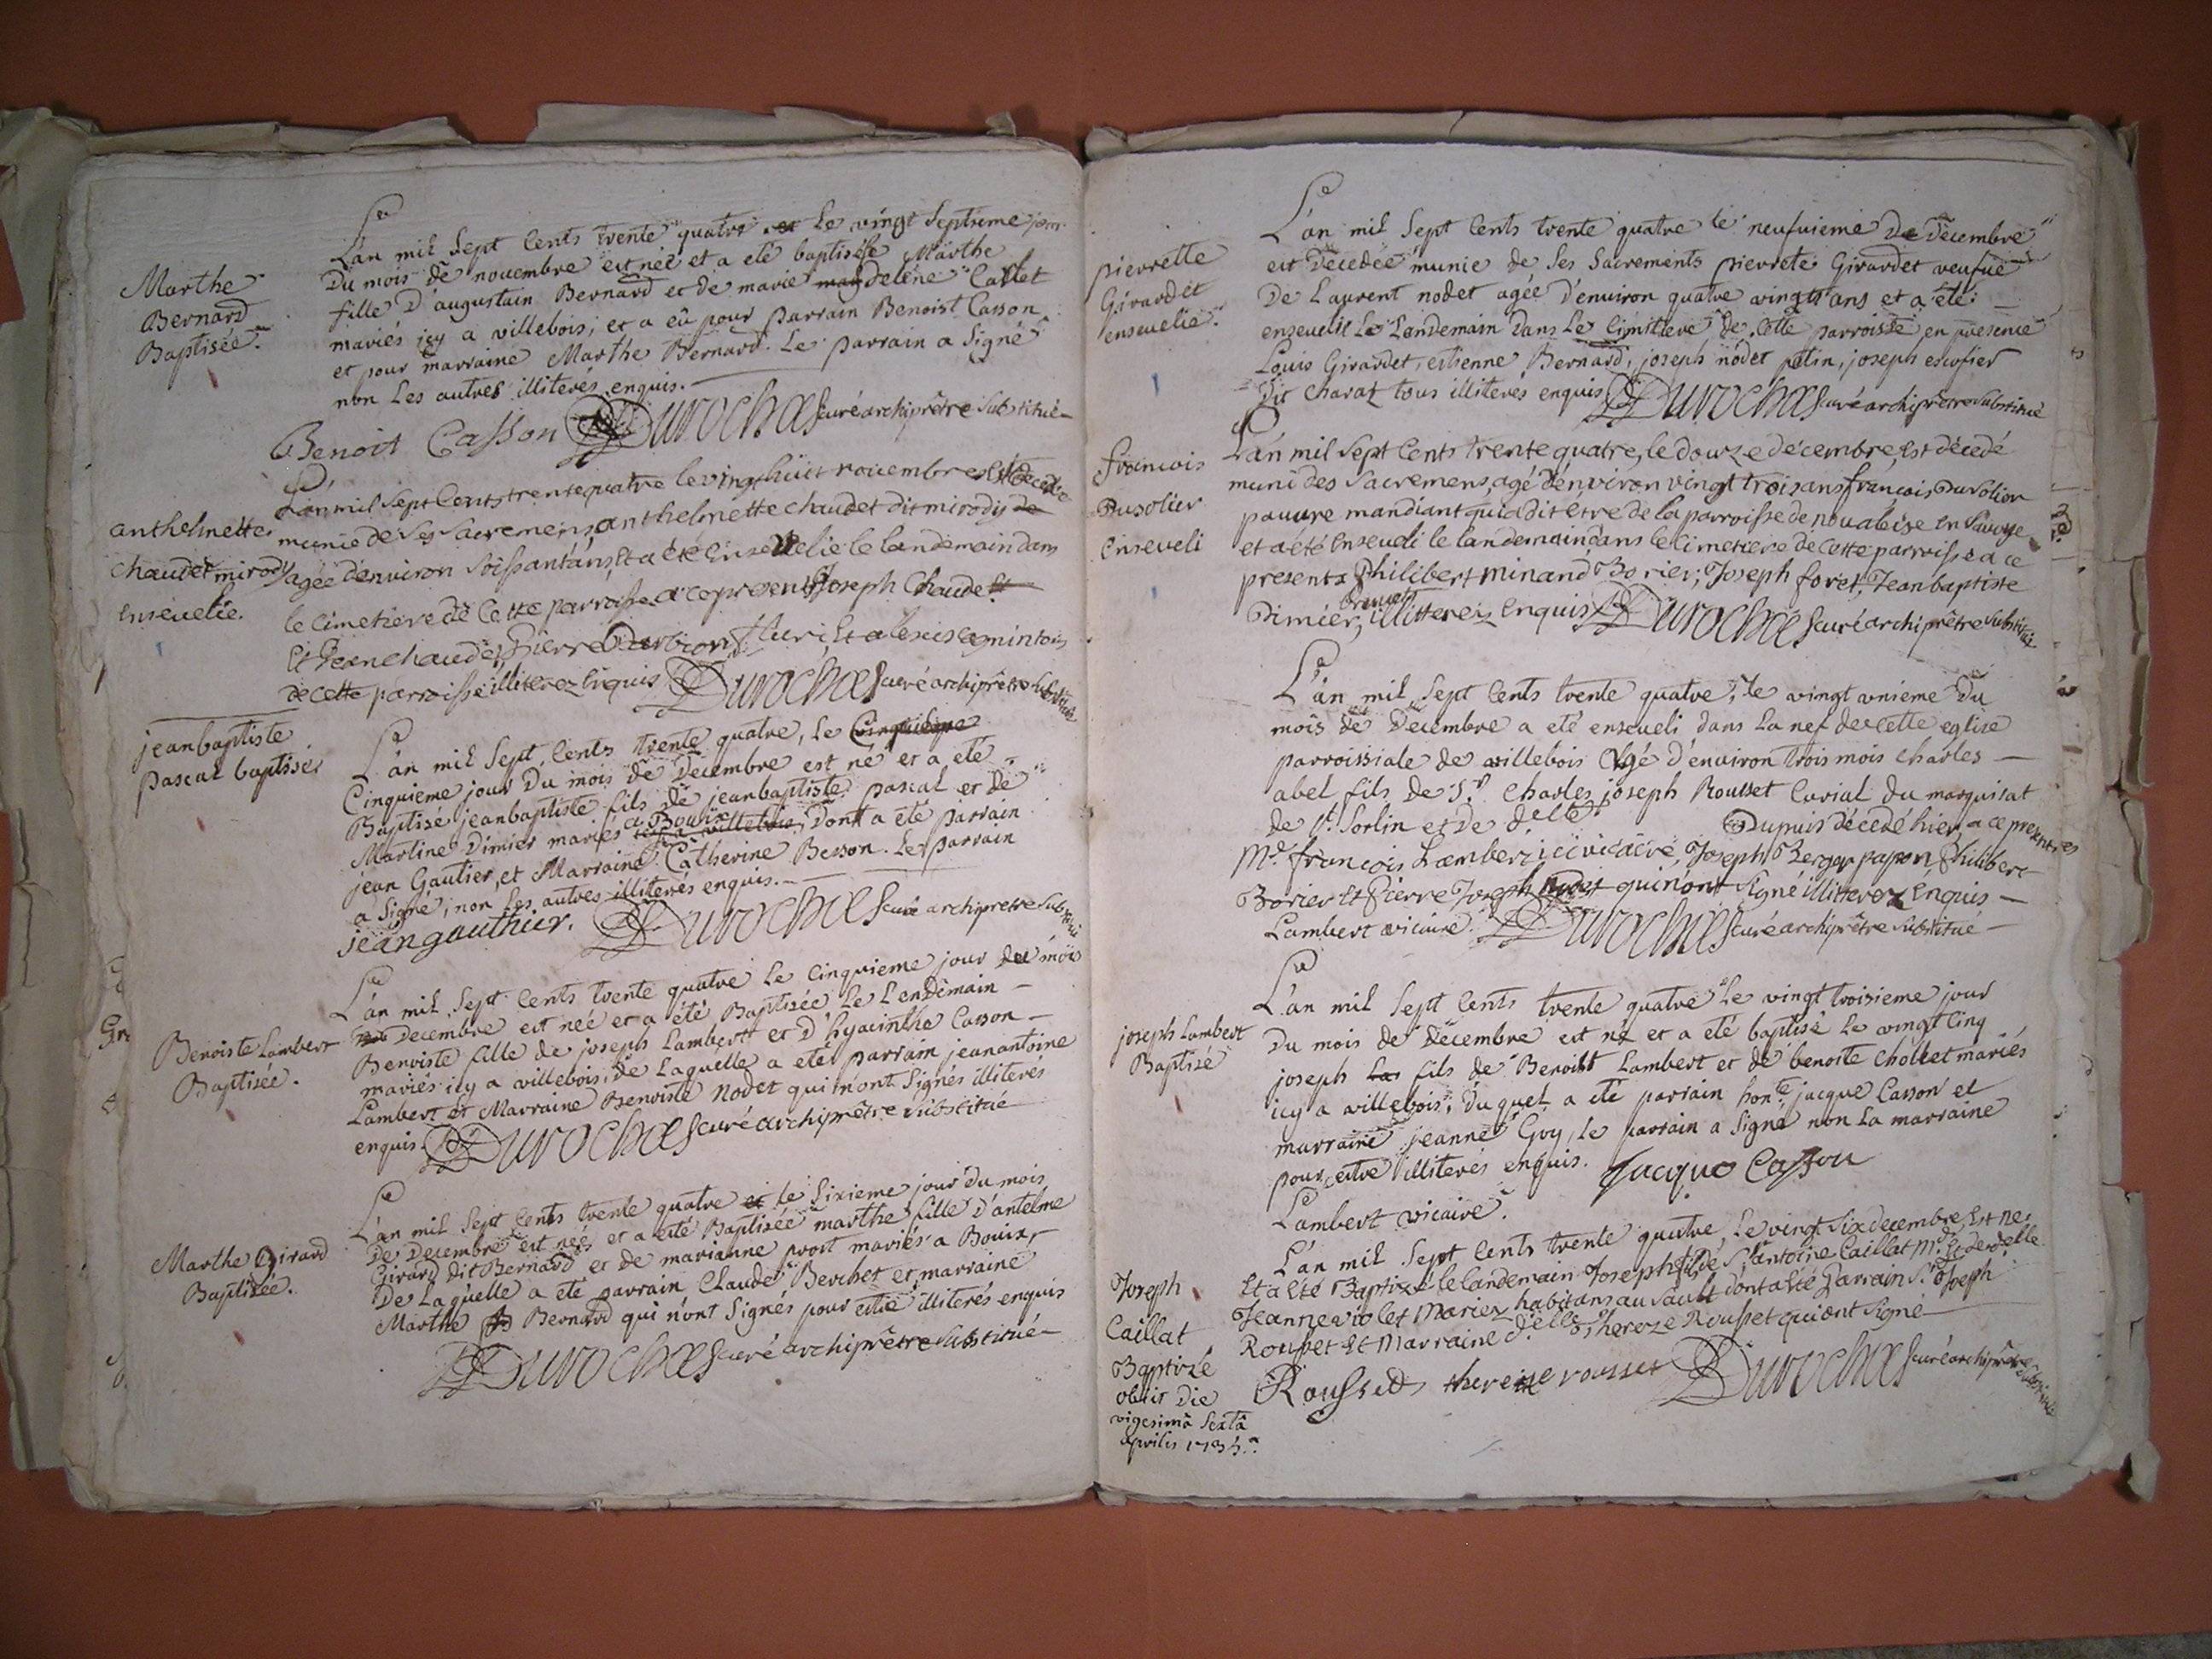 Marthe
Bernard
Baptisée.
L'an mil Sept Cents trente quatre et Le vingt Septieme jour
Du mois de nouembre est née et a eté baptisée Marthe
fille D'augustain Bernard et de marie magdelene Callet
mariés icy a villebois; et a eû pour parrain Benoist Casson
et pour marraine Marthe Bernard. Le parrain a Signé
non Les autres illiterés enquis.
Benoit Casson Durochas curé archiprêtre Substitué
anthelmette
chaudet mirody
enseuelie.
L'an mil Sept Cents trente quatre le vingt huit nouembre est decedée
munie de Ses Sacremens, anthelmette chaudet dit mirody de
agée d'enuiron Soissant'ans, Et a été Enseuelie le landemain dans
le Cimetiere de Cette parroisse a ce presents Joseph Chaudet
Et Jean chaudet, Pierre fleuri, Et alexis
de Cette parroisse illiterez Enquis Durochas curé archiprêtre Substitué
jeanbaptiste
pascal baptisé
L'an mil Sept Cents trente quatre, Le Cinquieme
Cinquieme jour Du mois de Decembre est né et a eté
Baptisé jeanbaptiste fils de jeanbaptiste pascal et de
Martine Dimier mariés a Bouïx icy a villebois, Dont a eté parrain
jean Gautier, et Marraine Catherine Besson. Le parrain
a Signé, non Les autres illiterés enquis.
jean gauthier. Durochas curé archiprêtre Substitué
Benoiste Lambert
Baptisée.
L'an mil Sept Cents trente quatre Le Cinquieme jour du mois
Decembre est née et a été Baptisée Le Lendemain
Benoiste fille de joseph Lambert et D'hyacinthe Casson
mariés icy a villebois, De Laquelle a eté parrain jeanantoine
Lambert et Marraine Benoiste Nodet qui n'ont Signés illiterés
enquis. Durochas curé archiprêtre Substitué
Marthe Girard
Baptisée.
L'an mil Sept Cents trente quatre et le Sixieme jour du mois
De Decembre est née et a eté Baptisée marthe fille D'antelme
Girard dit Bernard et de marianne prost mariés a Bouix,
De Laquelle a eté parrain Claude Berchet et marraine
Marthe Bernard qui n'ont Signés pour estre illiterés enquis
Durochas curé archiprêtre Substitué
pierrette
Girardet
enseuelie.
L'an mil Sept Cents trente quatre le neufuieme De Decembre
est Decedée munie de Ses Sacrements pierrete Girardet veufue
De Laurent nodet agée d'enuiron quatre vingts ans et a eté
enseuelie Le Landemain Dans Le Cimitiere de Cette parroisse en presence
Louis Girardet, estienne Bernard, joseph nodet pelin, joseph escofier
Dit Charat tous illiterés enquis Durochas curé archiprêtre Substitué
francois
Dusolier
Enseveli
L'an mil Sept Cents trente quatre, le douze décembre, Est décédé
muni des Sacremens, agé d'environ vingt trois ans françois Dusolier
pauure mandiant qui a dit etre de la parroisse de noualeise en Savoye
et a été Enseveli le landemain dans le Cimetiere de Cette parroisse a ce
presents Philibert minand Borier, Joseph foret, Jean baptiste
Dimier, illitterez Enquis Durochas curé archiprêtre Substitué
L'an mil Sept Cents trente quatre, le vingt vnieme Du
mois de Decembre a eté enseueli dans La nef de Cette eglise
parroissiale de villebois Agé d'enuiron trois mois Charles
abel fils de Sr. Charles joseph Rousset Curial du marquisat
de St. Sorlin et de delle. Dupuis décédé hier a ce presents
Mre. françois Lambert ici vicaire, Joseph Berger papon, Philibert
Borier Et Pierre Joseph Nodet qui n'ont Signé illitterez Enquis
Lambert vicaire. Durochas curé archiprêtre Substitué
joseph Lambert
Baptisé
L'an mil Sept Cents trente quatre Le vingt troisieme jour
Du mois de decembre est né et a eté baptisé Le vingt Cinq
joseph Las fils de Benoist Lambert et de benoite Chollet mariés
icy a villebois; duquel a eté parrain honte. jacque Casson et
marraine jeanne Guy, Le parrain a Signé non La marraine
pour estre illiterés enquis. Jacque Casson
Lambert vicaire.
Joseph
Caillat
Baptizé
obiit Die
vigesima Sexta
aprilis 1735.
L'an mil Sept Cents trente quatre, Le vingt Six decembre, Est né
Et a été Baptizé le landemain Joseph fils de Sr. antoine Caillat Md. Et de delle.
Jeanne violet Mariez habitans au Sault dont a été Parrain Sr. Joseph
Rousset Et Marraine d'elle Thereze Rousset qui ont Signé
Rousset therese rousset Durochas curé archiprêtre Substitué